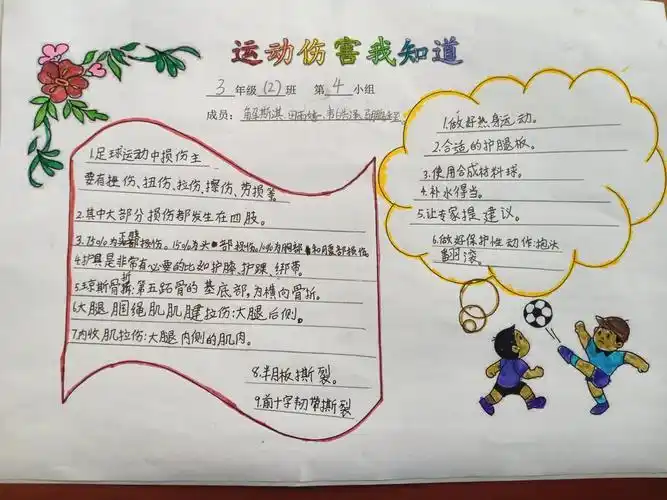 运动伤害我知道
3 年级 (2) 班 第 4 小组
成员:
1.足球运动中损伤主
要有挫伤、扭伤、拉伤、擦伤、劳损等。
2.其中大部分损伤都发生在四肢。
3.75%为 损伤。15%为头部损伤。 为胸部和腹部损伤。
4.护具是非常有必要的比如护膝、护踝、绑带。
5.琼斯骨折:第五跖骨的基底部,为横向骨折。
6.大腿腘绳肌肌腱拉伤:大腿后侧。
7.内收肌拉伤:大腿内侧的肌肉。
8.半月板撕裂。
9.前十字韧带撕裂
1.做好热身运动。
2.合适的护腿板。
3.使用合成材料球。
4.补水得当。
5.让专家提建议。
6.做好保护性动作:抱头
翻滚。